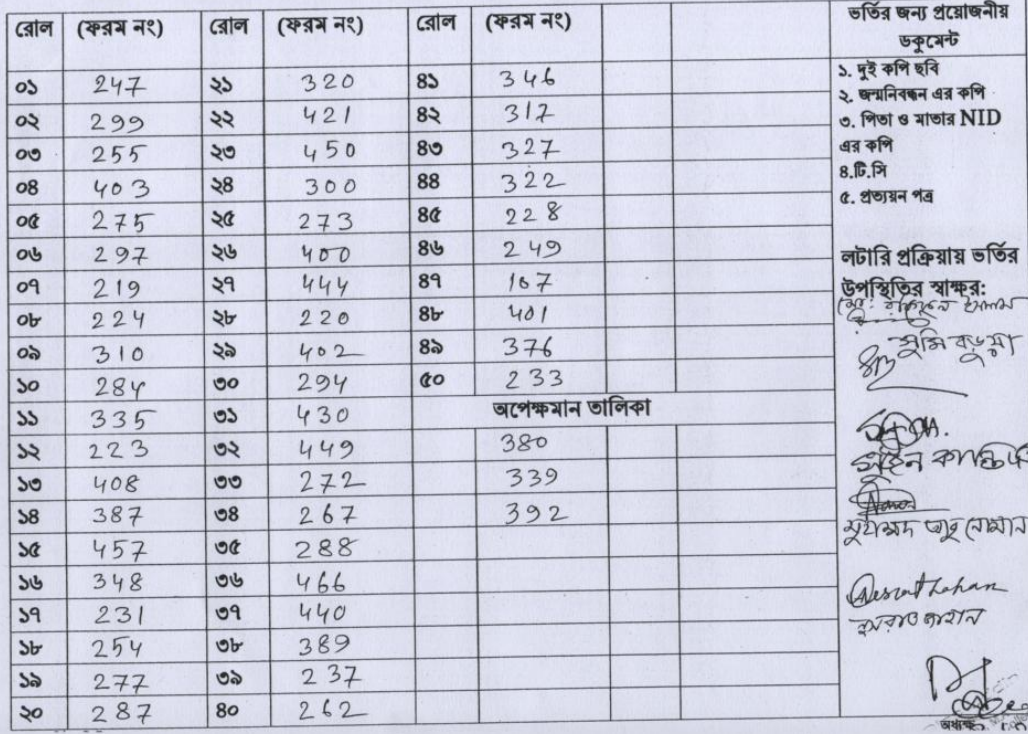 রোল (ফরম নং) রোল (ফরম নং) রোল (ফরম নং)
০১ 247 ২১ 320 ৪১ 346
০২ 299 ২২ 421 ৪২ 317
০৩ 255 ২৩ 450 ৪৩ 327
০৪ 403 ২৪ 300 ৪৪ 322
০৫ 275 ২৫ 273 ৪৫ 228
০৬ 297 ২৬ 400 ৪৬ 249
০৭ 219 ২৭ 444 ৪৭ 167
০৮ 224 ২৮ 220 ৪৮ 401
০৯ 310 ২৯ 402 ৪৯ 376
১০ 284 ৩০ 294 ৫০ 233
১১ 335 ৩১ 430 অপেক্ষমান তালিকা
১২ 223 ৩২ 449 380
১৩ 408 ৩৩ 272 339
১৪ 387 ৩৪ 267 392
১৫ 457 ৩৫ 288
১৬ 348 ৩৬ 466
১৭ 231 ৩৭ 440
১৮ 254 ৩৮ 389
১৯ 277 ৩৯ 237
২০ 287 ৪০ 262
ভর্তির জন্য প্রয়োজনীয়
ডকুমেন্ট
১. দুই কপি ছবি
২. জন্মনিবন্ধন এর কপি
৩. পিতা ও মাতার NID
এর কপি
৪.টি.সি
৫. প্রত্যয়ন পত্র
লটারি প্রক্রিয়ায় ভর্তির
উপস্থিতির স্বাক্ষর:
সুমি বড়ুয়া
মুহাম্মদ আবু নোমান
নুসরাত জাহান
অধ্যক্ষ